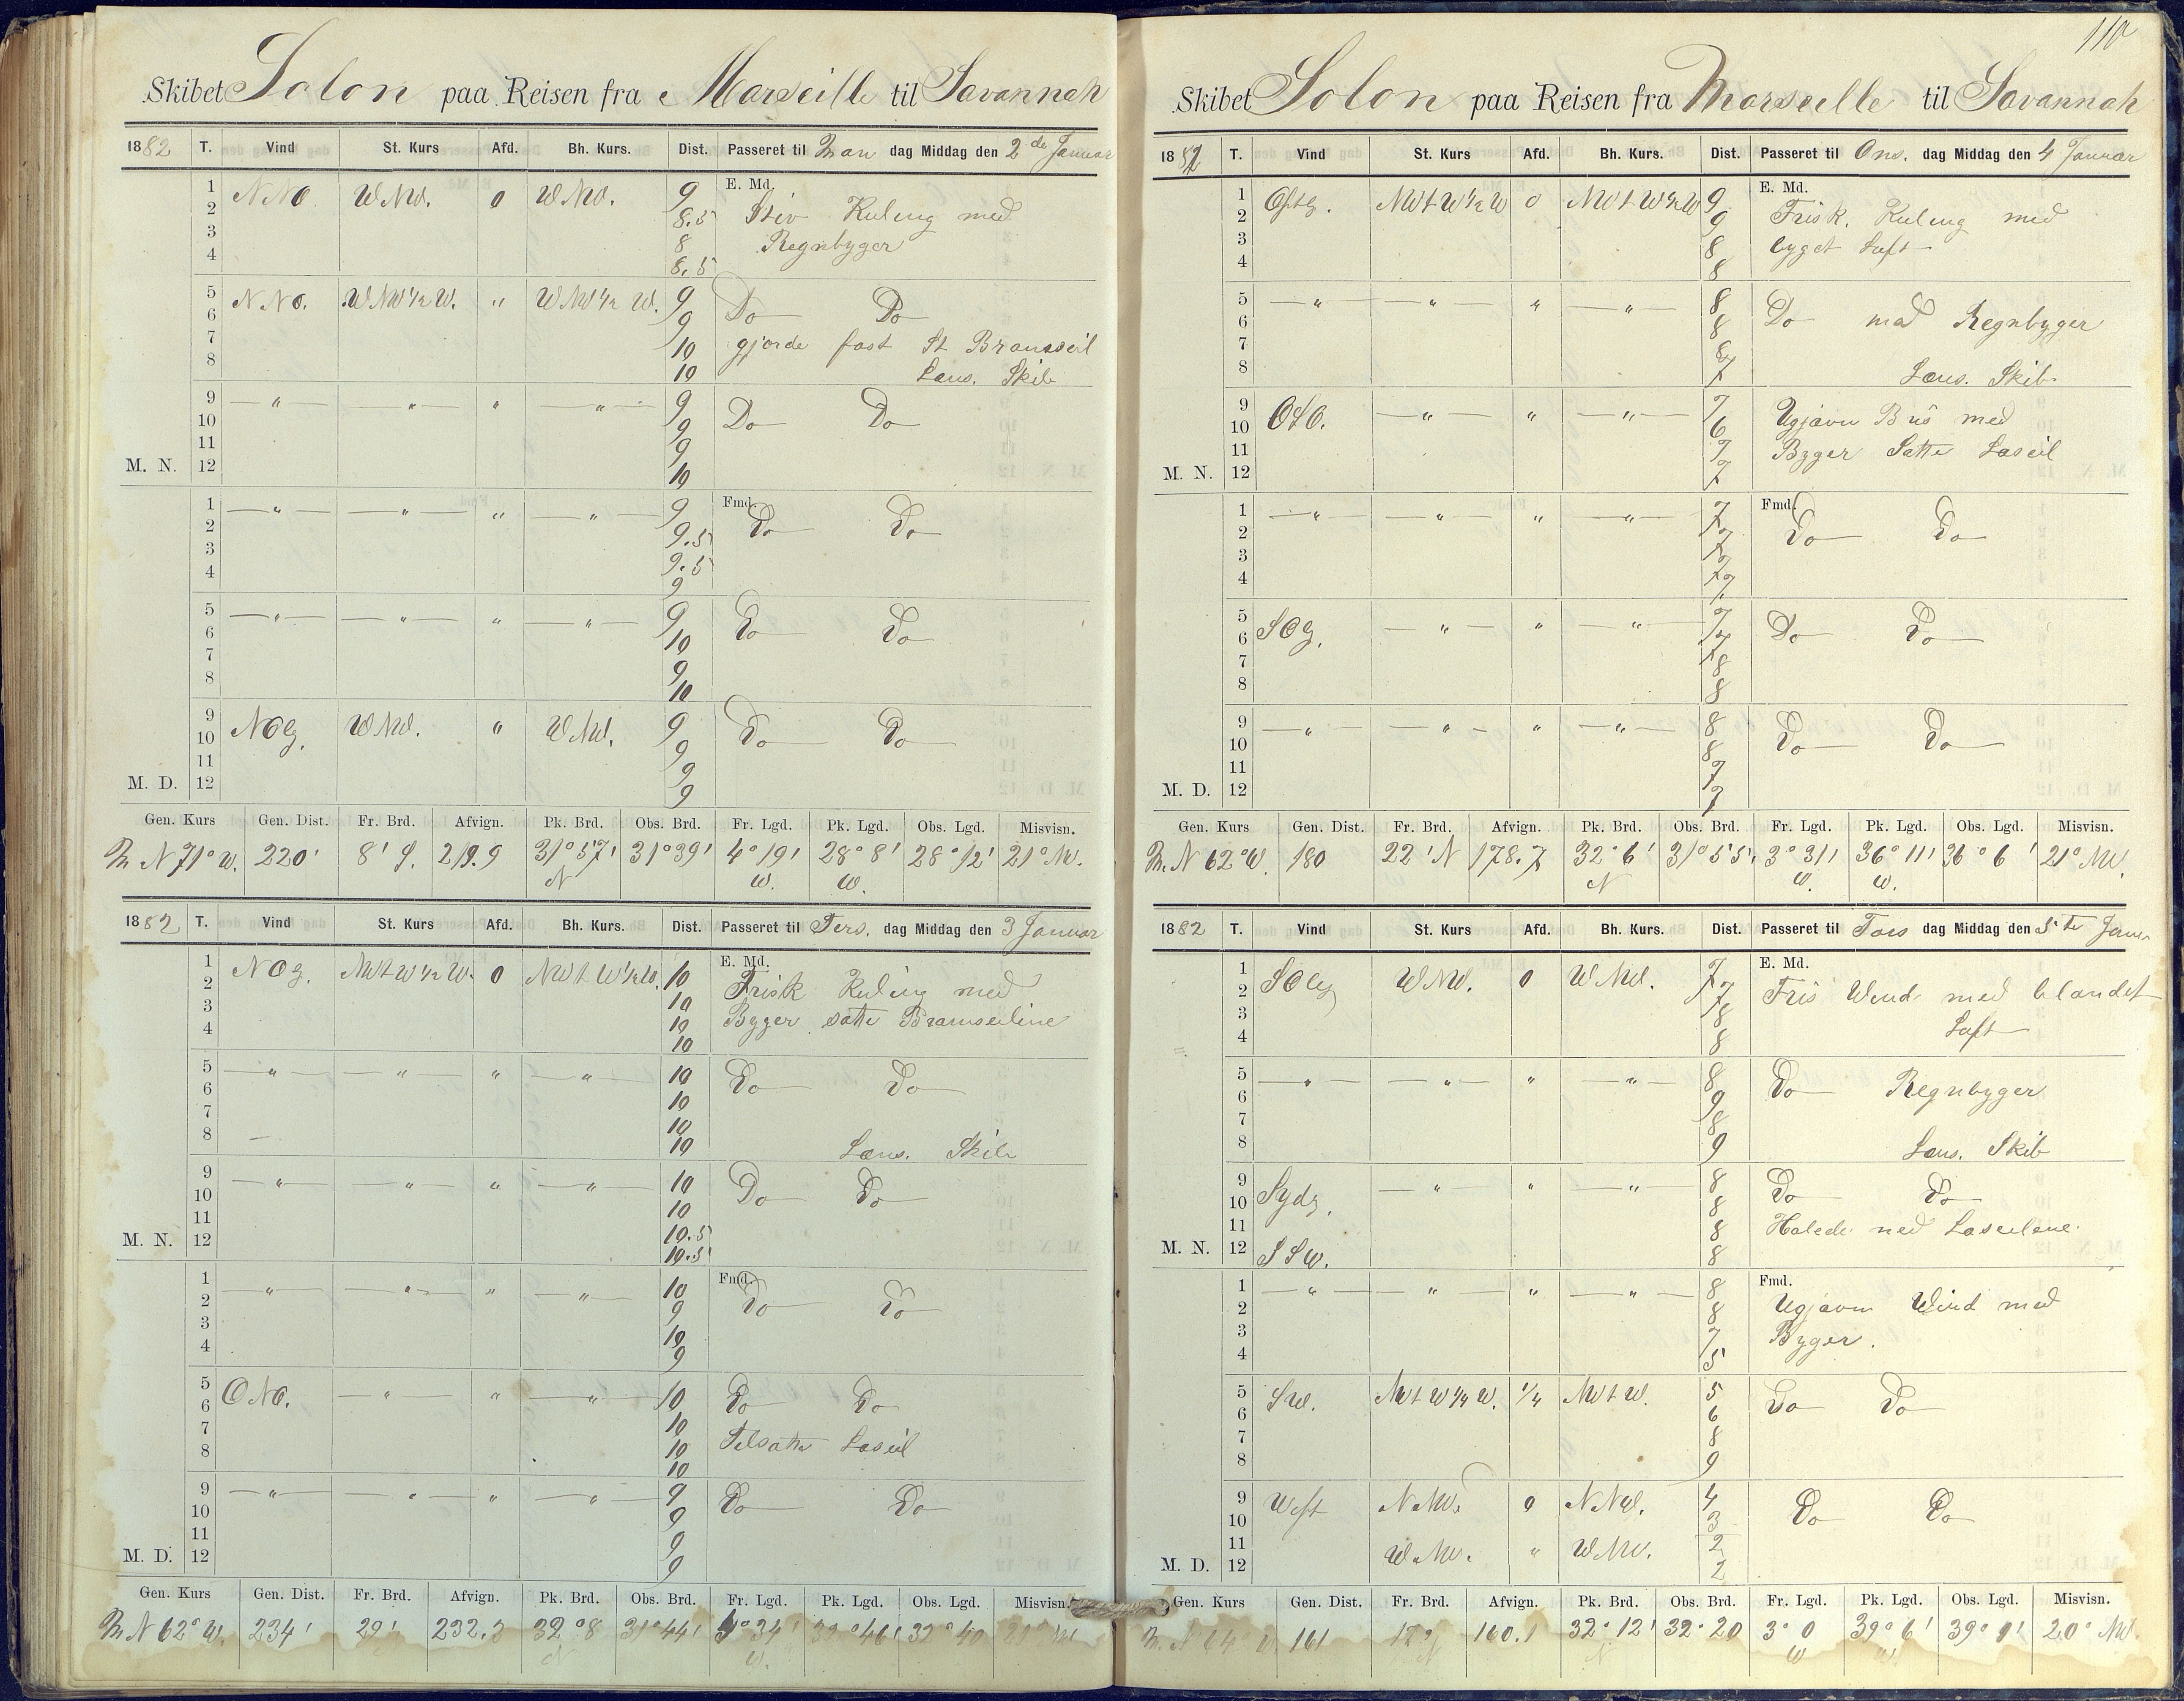 Skibet Solon paa Reisen fra Marseille til Savannah
1882 T. Vind St. Kurs Afd. Bh. Kurs. Dist. Passeret til Man dag Middag den 2de Januar
1 NNO WNW. 0 WNW. 9 E. Md.
2 8.5 Stiv Kuling med
3 8 Regnbyger
4 8.5
5 NNO. WNW 1/2 W. " WNW 1/2 W. 9 Do Do
6 9
7 10 gjorde fast St Bramseil
8 10 Lens. Skib
9 — " — — " — " — " — 9 Do Do
10 9
11 9
M. N. 12 10
1 — " — — " — " — " — 9 Fmd. Do Do
2 9.5
3 9.5
4 9
5 — " — — " — " — " — 9 Do Do
6 10
7 9
8 10
9 NOlg. WNW. " WNW. 9 Do Do
10 9
11 9
M. D. 12 9
Gen. Kurs Gen. Dist. Fr. Brd. Afvign. Pk. Brd. Obs. Brd. Fr. Lgd. Pk. Lgd. Obs. Lgd. Misvisn.
N 71° W. 220' 8' S. 219.9 31° 57' N 31° 39' 4° 19' W. 28° 8' W. 28° 12' 21° NW.
1882 T. Vind St. Kurs Afd. Bh. Kurs. Dist. Passeret til Tirs. dag Middag den 3 Januar
1 NOlg. NWtW 1/2 W. 0 NWtW 1/2 W. 10 E. Md.
2 10 Frisk Kuling med
3 10 Bgger satte Bramseilene
4 10
5 — " — — " — " — " — 10 Do Do
6 10
7 10
8 10 Lens. Skib
9 — " — — " — " — " — 10 Do Do
10 10
11 10.5
M. N. 12 10.5
1 — " — — " — " — " — 10 Fmd. Do Do
2 9
3 10
4 9
5 ONO. — " — " — " — 10 Do Do
6 10
7 10 Tilsatte Læseil
8 10
9 — " — — " — " — " — 9 Do Do
10 9
11 9
M. D. 12 9
Gen. Kurs Gen. Dist. Fr. Brd. Afvign. Pk. Brd. Obs. Brd. Fr. Lgd. Pk. Lgd. Obs. Lgd. Misvisn.
N 62° W. 234' 29' 232.3 32° 8 N 31° 44' 4° 34' W. 32° 46' 32° 40 21° NW
110
Skibet Solon paa Reisen fra Marseille til Savannah
1882 T. Vind St. Kurs Afd. Bh. Kurs. Dist. Passeret til Ons. dag Middag den 4 Januar
1 Østlg. NWtW 1/2 W 0 NWtW 1/2 W 9 E. Md.
2 9 Frisk. Kuling med
3 8 byget Luft
4 8
5 — " — — " — " — " — 8 Do med Regnbyger
6 8
7 8
8 7 Lens. Skib
9 OSO. — " — " — " — 7 Ugjævn Bris med
10 6
11 7 Byger Satte Læseil
M. N. 12 7
1 — " — — " — " — " — 7 Fmd. Do Do
2 7
3 7
4 7
5 SOlg. — " — " — " — 7 Do Do
6 7
7 8
8 8
9 — " — — " — " — " — 8 Do Do
10 8
11 7
M. D. 12 7
Gen. Kurs Gen. Dist. Fr. Brd. Afvign. Pk. Brd. Obs. Brd. Fr. Lgd. Pk. Lgd. Obs. Lgd. Misvisn.
N 62° W. 180 22' N 178.7 32° 6' N 31° 55' 3° 31' W. 36° 11' W. 36° 6' 21° NW.
1882 T. Vind St. Kurs Afd. Bh. Kurs. Dist. Passeret til Tors dag Middag den 5te Janu
1 SOlg WNW. 0 WNW. 7 E. Md.
2 7 Fris Wind med blandet
3 8 Luft
4 8
5 — " — — " — " — " — 8 Do Regnbyger
6 9
7 8
8 9 Lens. Skib
9 Sydlg. — " — " — " — 8 Do Do
10 8
11 8 Halede ned Læseilene.
M. N. 12 SSW. 8
1 — " — — " — " — " — 8 Fmd.
2 8 Ugjævn Wind med
3 7 Byger.
4 5
5 SW. NWtW 1/4 W. 1/4 NWtW. 5 Do Do
6 6
7 8
8 9
9 West NNW. 0 NNW. 4 Do Do
10 3
11 WNW. " WNW. 2
M. D. 12 2
Gen. Kurs Gen. Dist. Fr. Brd. Afvign. Pk. Brd. Obs. Brd. Fr. Lgd. Pk. Lgd. Obs. Lgd. Misvisn.
N 64 W 161 17' N 160.1 32° 12' N 32° 20 3° 0 W 39° 6' W. 39° 9' 20° NW.